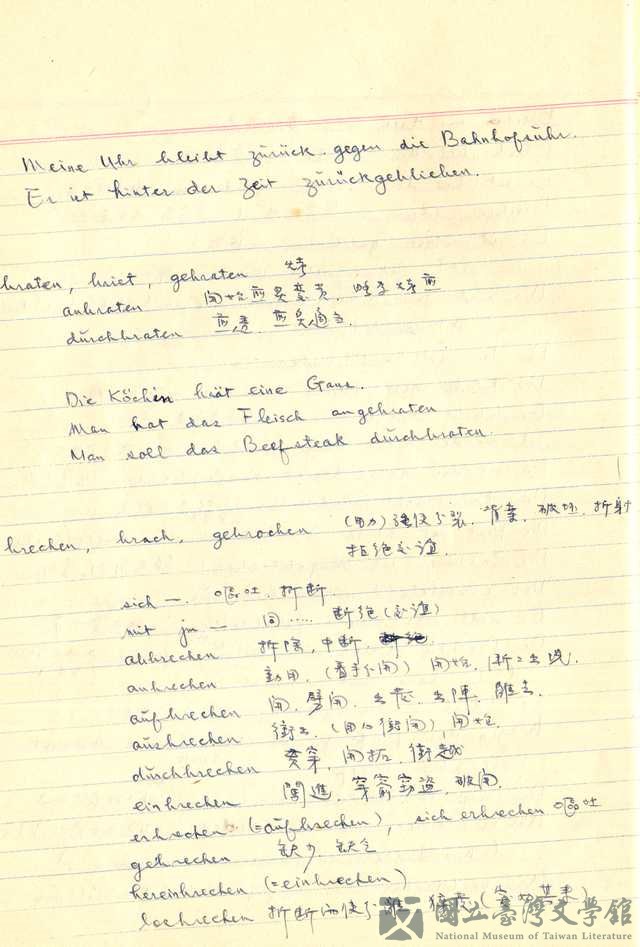 Meine Uhr bleibt zurück gegen die Bahnhofsuhr.
Er ist hinter der Zeit zurückgeblieben.
braten, briet, gebraten 烤
anbraten 開始煎
durchbraten 煎透
Die Köchin brät eine Gans.
Man hat das Fleisch angebraten
Man soll das Beefsteak durchbraten.
brechen, brach, gebrochen (用力)強使分裂, 背棄, 破坏, 折射
拒絕交誼
sich — 嘔吐, 折断
mit jm — 同..... 断絕(交誼)
abbrechen 拆除, 中断,
anbrechen 動用, (着手分開) 開始,
aufbrechen 開, 劈開, 出發, 出陣, 離去
ausbrechen 衝出, (用力衝開), 開始
durchbrechen 貫穿, 開拓, 衝越
einbrechen 闖進, 穿窬窃盜, 破開
erbrechen (=aufbrechen), sich erbrechen 嘔吐
gebrechen 缺少, 缺乏
hereinbrechen (=einbrechen)
losbrechen 折断而使分離
國立臺灣文學館
National Museum of Taiwan Literature